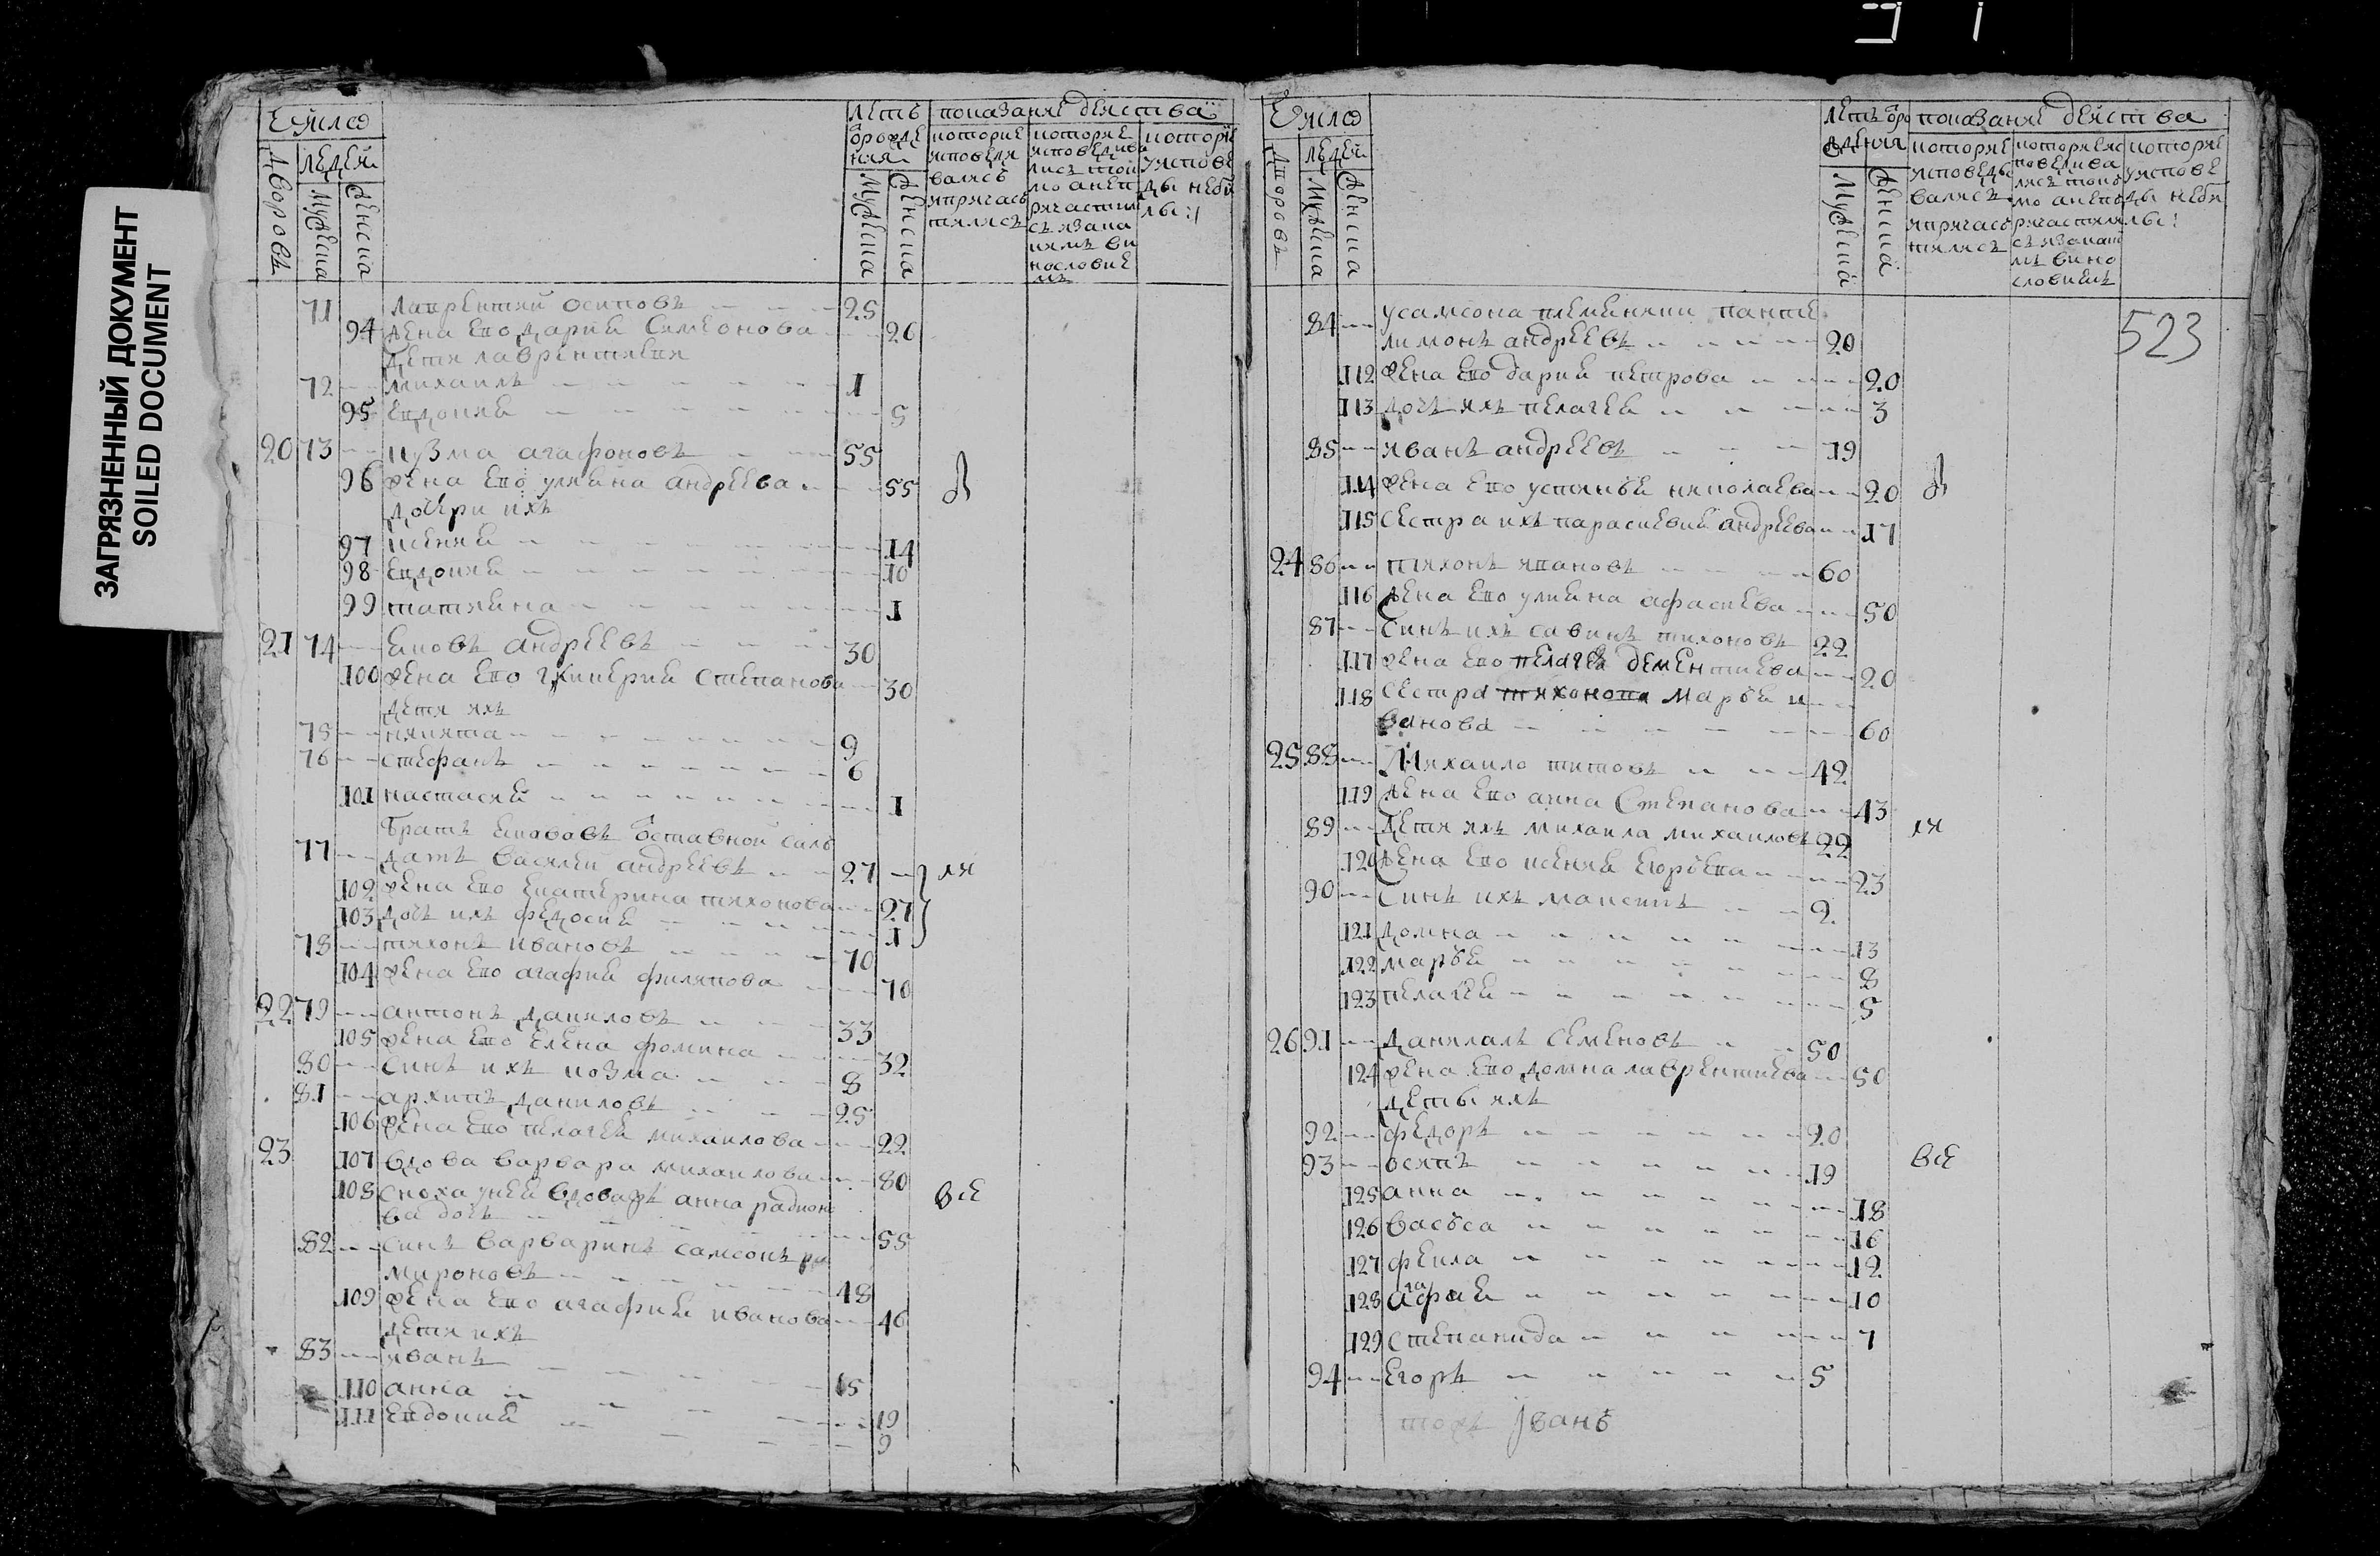 ЗАГРЯЗНЕННЫЙ ДОКУМЕНТ
SOILED DOCUMENT
Число
Дворовъ
людей
мужеска
женска
летъ от рождения
мужеска
женска
показание действа
которые исповедывались и причастились
которые исповедывались токмо а не причастились и за каким винословием
которые у исповеди не были
71 лаврентий осиповъ 25
94 жена ево дария симеонова 26
дети лаврентиевы
72 михаилъ 1
95 евдокия 5
20 73 кузма агафоновъ 55
96 жена ево улияна андреева 55
дочери ихъ
97 ксения 14
98 евдокия 10
99 татияна 1
21 74 иаковъ андреевъ 30
100 жена ево гликерия степанова 30
дети ихъ
75 никита 9
76 стефанъ 6
101 настасия 1
братъ иаковъ отставной сал
77 датъ василей андреевъ 27
102 жена ево екатерина тихонова 27
103 дочь ихъ федосия 1
78 тихонъ ивановъ 70
104 жена ево агафия филипова 70
22 79 антонъ даниловъ 33
105 жена ево елена фомина 32
80 синъ ихъ козма 8
81 архипъ даниловъ 25
106 жена ево пелагея михаилова 22
23 107 вдова варвара михаилова 80
108 сноха у ней вдова анна радионо
ва дочь 55
82 синъ варваринъ самсонъ
мироновъ 48
109 жена ево агафия иванова 46
дети ихъ
83 иванъ 15
110 анна 19
111 евдокия 9
все
Число
Дворовъ
людей
мужеска
женска
летъ от рождения
мужеска
женска
показание действа
которые исповедывались и причастились
которые исповедывались токмо а не причастились и за каким винословием
которые у исповеди не были
523
у самсона племянник панте
84 лимонъ андреевъ 20
112 жена ево дария петрова 20
113 дочь ихъ пелагея 3
85 иванъ андреевъ 19
114 жена ево устинья николаева 20
115 сестра ихъ параскевия андреева 17
24 86 тихонъ ивановъ 60
116 жена ево улияна афасиева 50
87 синъ ихъ савинъ тихоновъ 22
117 жена ево пелагея дементиева 20
118 сестра тихонова марья и
ванова 60
25 88 Михаило титовъ 42
119 жена ево анна степанова 43
89 дети ихъ михаила михаиловъ 22
120 жена ево ксения егорьева 23
90 Синъ ихъ максимъ 2
121 домна 13
122 марья 8
123 пелагея 5
26 91 данилалъ семеновъ 50
124 жена ево домна лаврентиева 50
детьи ихъ
92 федоръ 20
93 осипъ 19
125 анна 18
126 васьса 16
127 фекла 12
128 агафия 10
129 степанида 7
94 егоръ 5
все
тожъ Іванъ